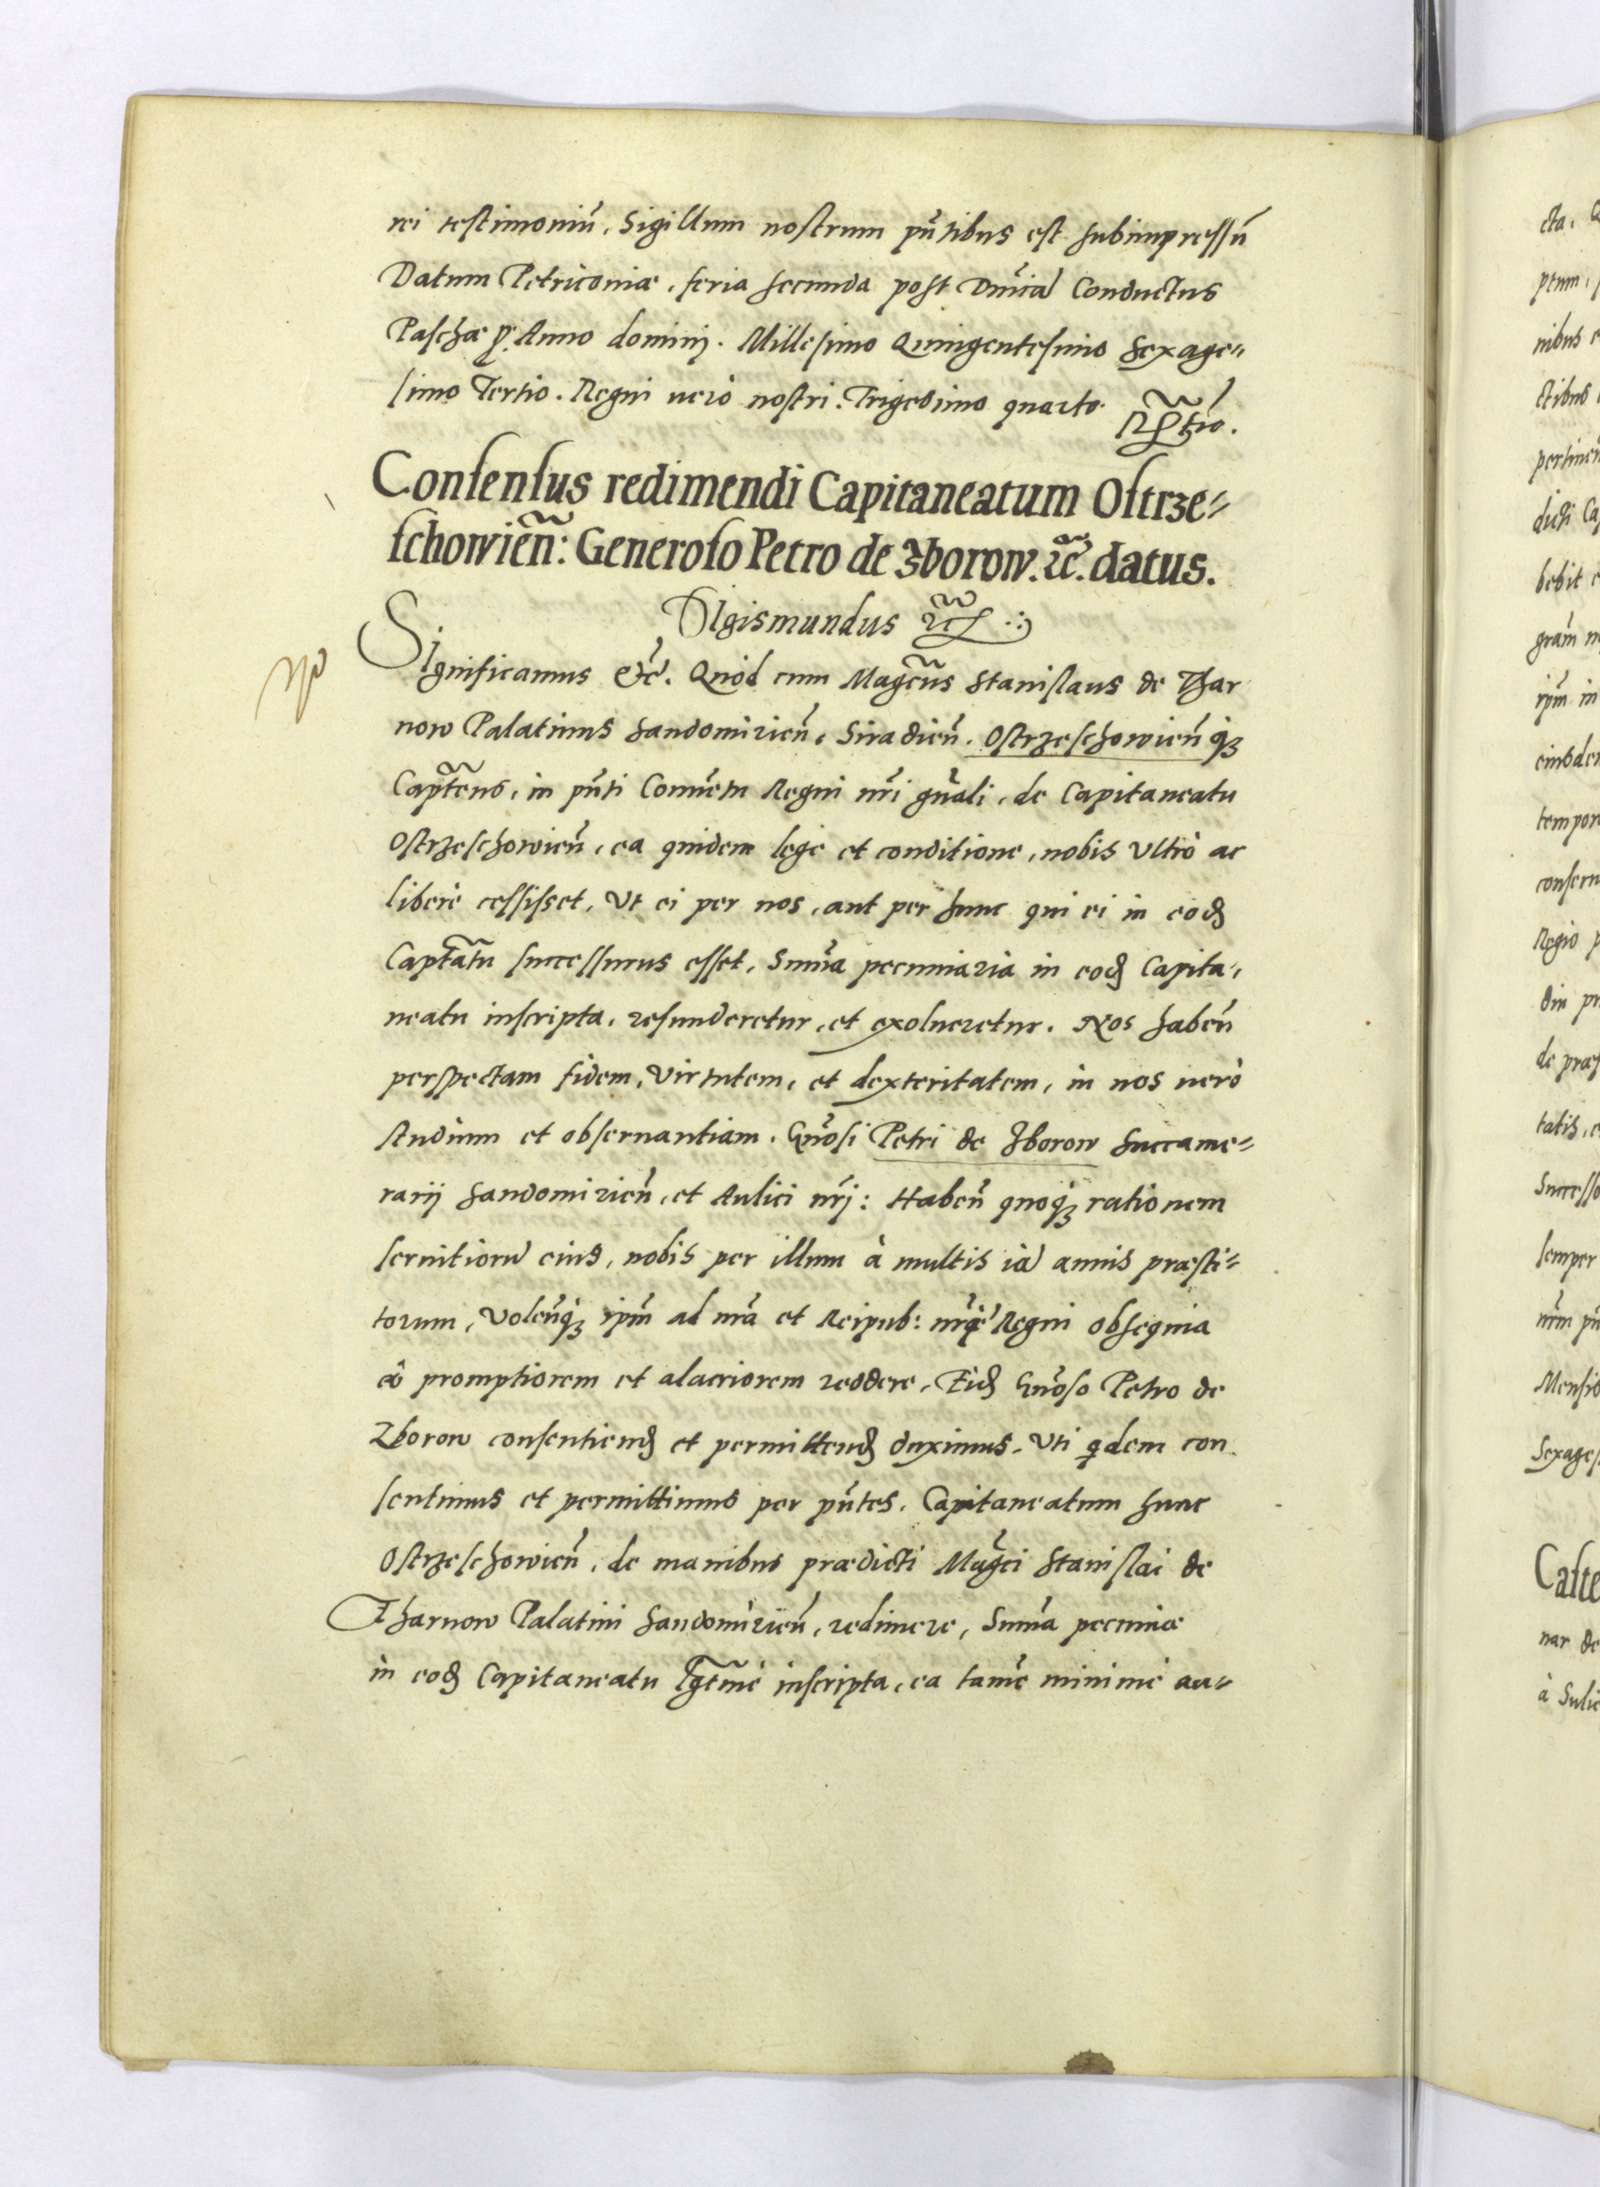 rei testimoniũ, Sigillum nostrum pñtibus est subimpressũ
Datum Petricouiæ, feria secunda post Dñica Conductus
Paschæ p̱: Anno dominij. Millesimo Quingentesimo Sexage=
simo Tertio. Regni uerò nostri. Trigesimo quarto.
Consensus redimendi Capitaneatum Ostrze=
schowieñ: Generoso Petro de Zborow. ꝛc̃. datus.
SIgismundus ꝛc̃
SIgnificamus &c̃. Quòd cum Magc̃us Stanislaus de Thar
now Palatinus Sandomirieñ, Siradieñ. Ostrzeschowieñ qȝ
Capt̃eus, in pñti Conuẽtu Regni nr̃i gñali, de Capitaneatu
Ostrzeschowieñ, ea quidem lege et conditione, nobis Vltrò ac
liberè cessisset, Vt ei per nos, aut per hunc qui ei in eod̃
Capt̃atu successurus esset, Sum̃a pecuniaria in eod̃ Capita,
neatu inscripta, refunderetur, et exolueretur. Nos habeñ
perspectam fidem, Virtutem, et dexteritatem, in nos uerò
studium et obseruantiam, Gñosi Petri de Zborow Succame=
rarij Sandomirieñ, et Aulici nr̃j: Habeñ quoqȝ rationem
seruitioru eius, nobis per illum à multis ia annis præsti=
torum, Voleñqȝ ip̃m ad nr̃a et Reipub: nr̃æqȝ Regni obsequia
eò promptiorem et alacriorem reddere, Eid̃ Gñoso Petro de
Zborow consentiend̃ et permittend̃ duximus, Vti qdem con
sentimus et permittimus per pñtes, Capitaneatum hunc
Ostrzeschowieñ, de manibus prædicti Magc̃i Stanislai de
Tharnow Palatini Sandomirieñ, redimere, Sum̃a pecuniæ
in eod̃ Capitaneatu lgt̃imè inscripta, ea tamẽ minimè au=
cta.
ptum,
nibus
ctibus
dicti
bebit
gram̃
ip̃m in
eiusdem
Regio
din
semper
Mensis
Sexages
Caste
nar de
à Sulic